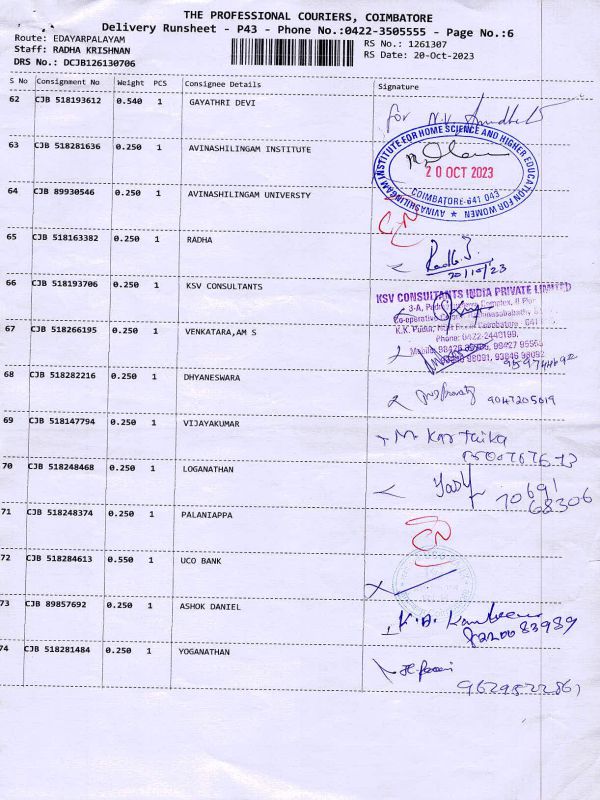 THE PROFESSIONAL COURIERS, COIMBATORE
Delivery Runsheet - P43 - Phone No.:0422-3505555 - Page No.:6
Route: EDAYARPALAYAM
Staff: RADHA KRISHNAN
DRS No.: DCJB126130706
RS No.: 1261307
RS Date: 20-Oct-2023
S No Consignment No Weight PCS Consignee Details Signature
62 CJB 518193612 0.540 1 GAYATHRI DEVI for
63 CJB 518281636 0.250 1 AVINASHILINGAM INSTITUTE
AVINASHILINGAM INSTITUTE FOR HOME SCIENCE AND HIGHER EDUCATION FOR WOMEN
20 OCT 2023
COIMBATORE-641 043
64 CJB 89930546 0.250 1 AVINASHILINGAM UNIVERSTY CN
65 CJB 518163382 0.250 1 RADHA Radha.J.
20/10/23
66 CJB 518193706 0.250 1 KSV CONSULTANTS
KSV CONSULTANTS INDIA PRIVATE LIMITED
3-A, Complex, II Floor
Co-operative
K.K. Pudur, Coimbatore - 641
Phone: 0422-2440199,
67 CJB 518266195 0.250 1 VENKATARA,AM S
68 CJB 518282216 0.250 1 DHYANESWARA 9047205019
69 CJB 518147794 0.250 1 VIJAYAKUMAR M. Kartaika
70 CJB 518248468 0.250 1 LOGANATHAN 70691
68306
71 CJB 518248374 0.250 1 PALANIAPPA CN
72 CJB 518284613 0.550 1 UCO BANK
73 CJB 89857692 0.250 1 ASHOK DANIEL K.A.
8220083989
74 CJB 518281484 0.250 1 YOGANATHAN